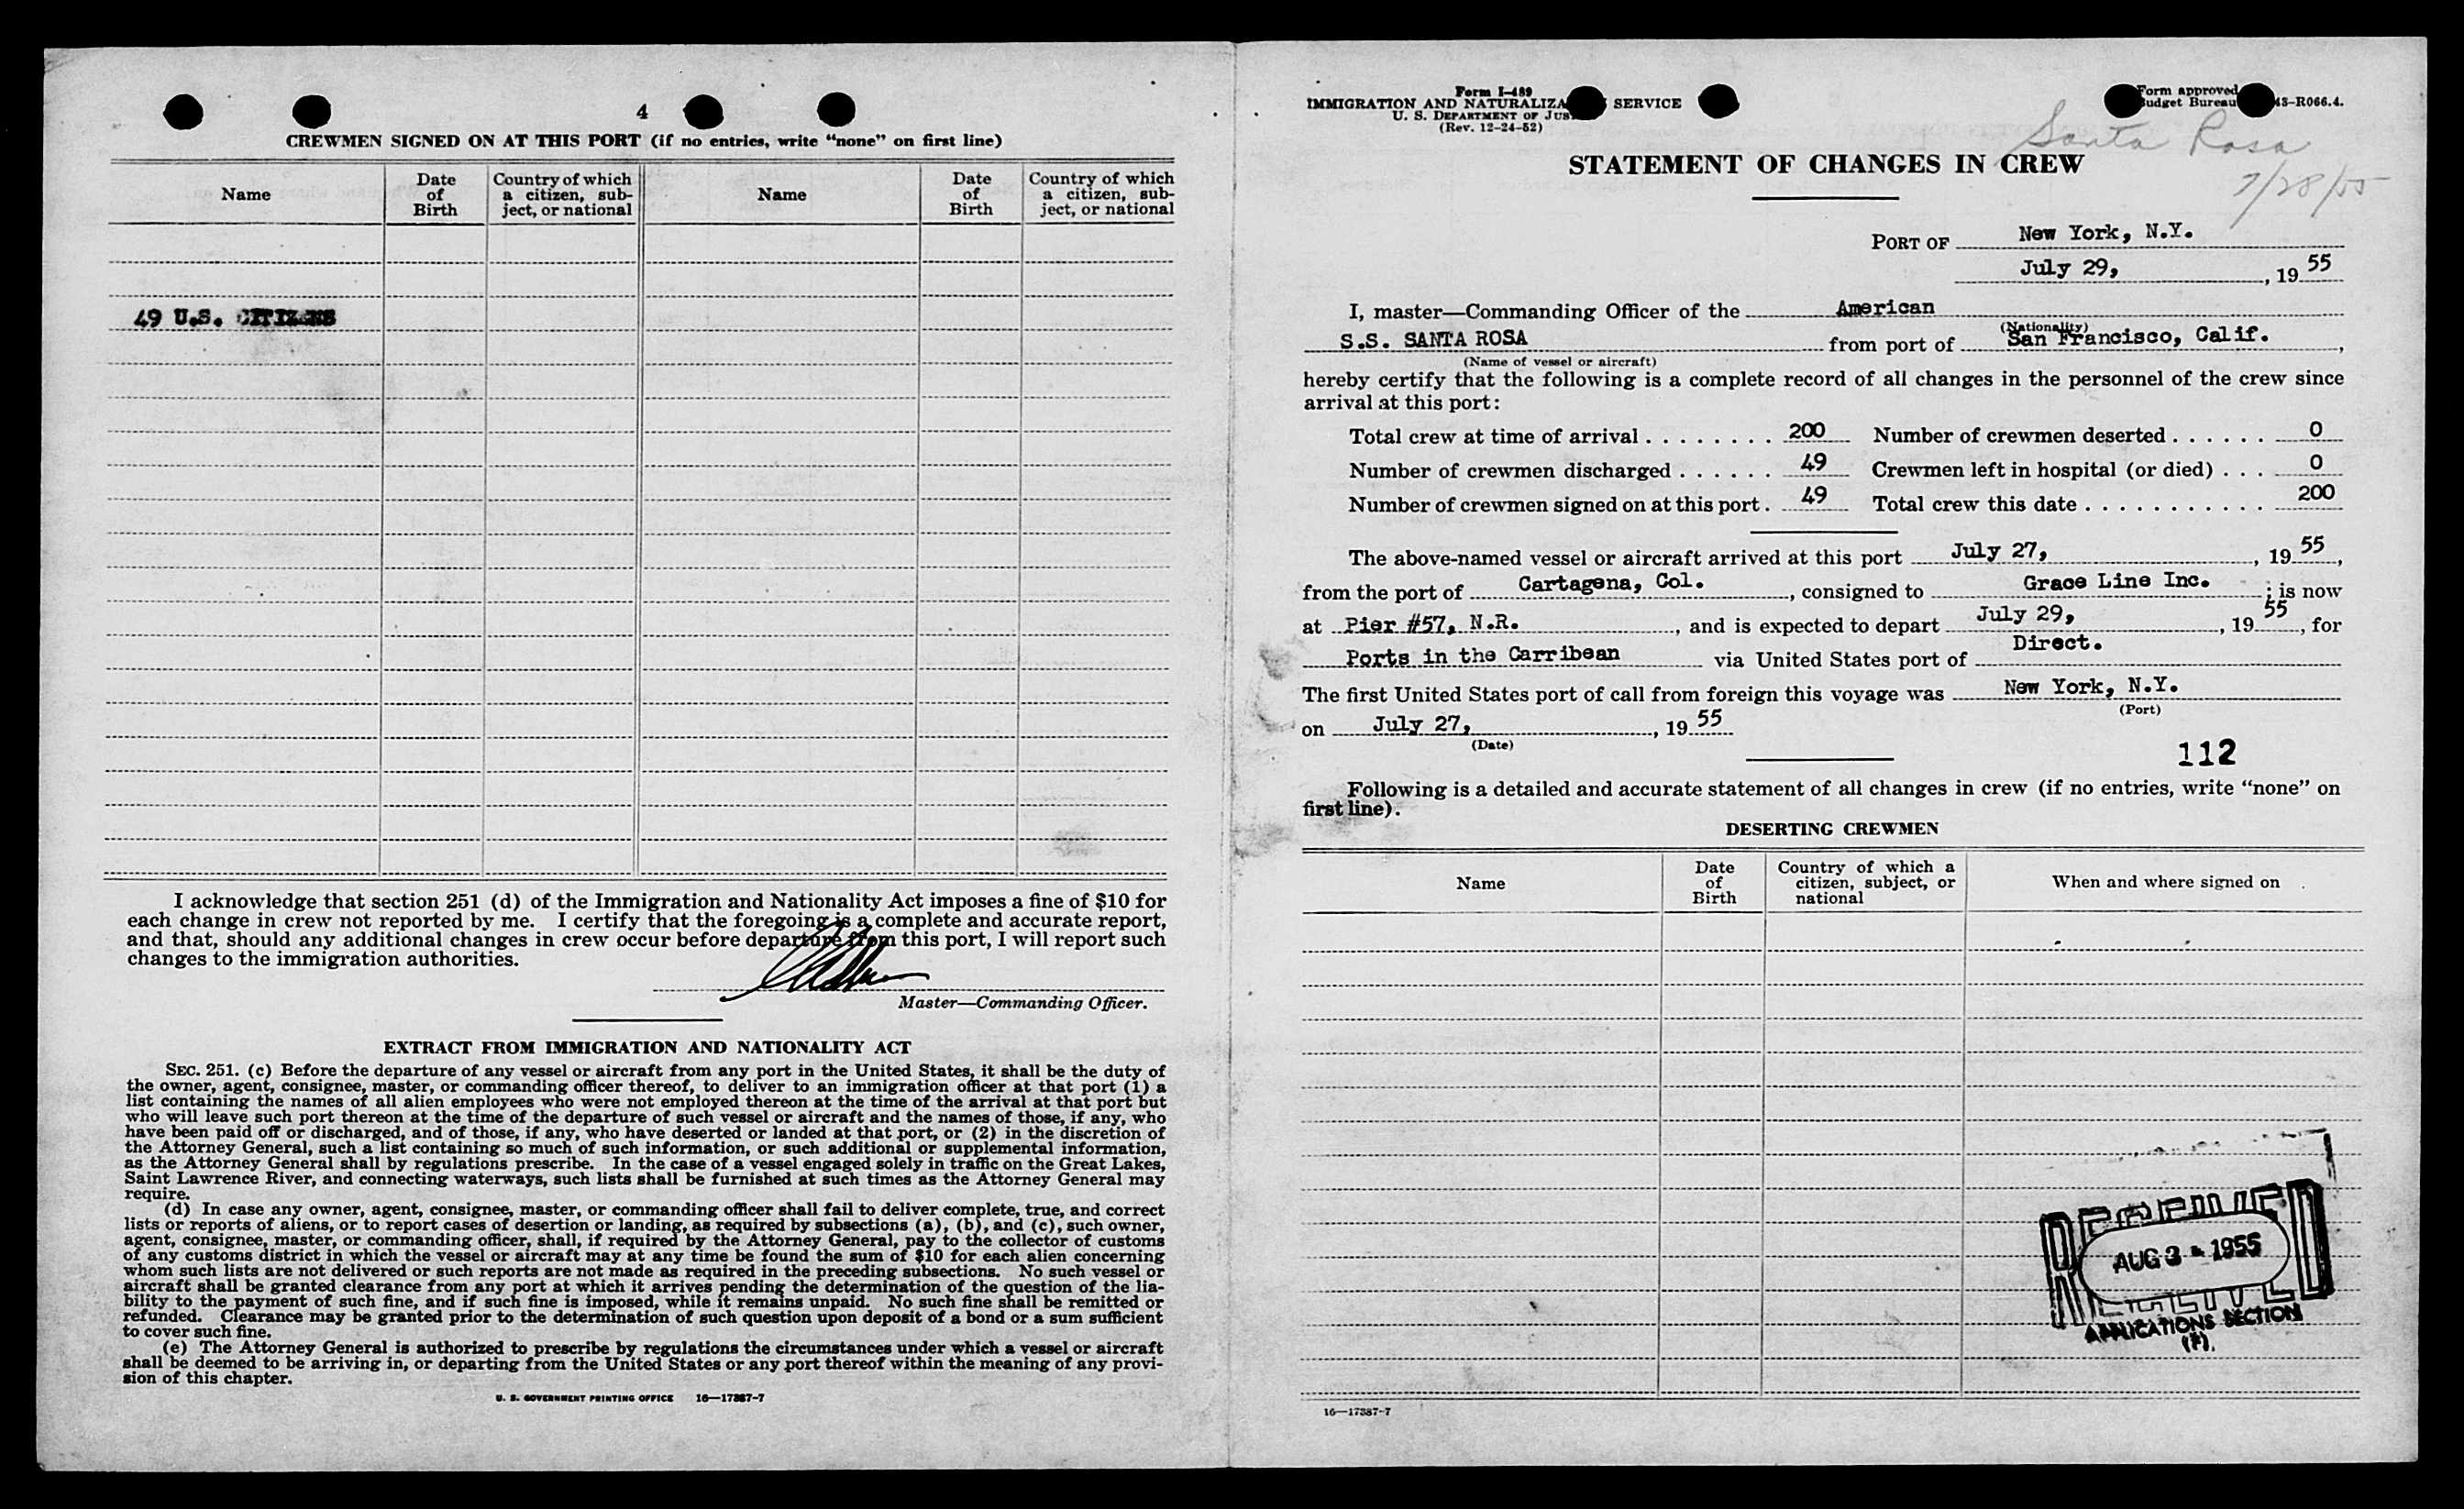 4
CREWMEN SIGNED ON AT THIS PORT (if no entries, write “none” on first line)
Name
Date of Birth
Country of which a citizen, subject, or national
Name
Date of Birth
Country of which a citizen, subject, or national
49 U.S. CITIZENS
I acknowledge that section 251 (d) of the Immigration and Nationality Act imposes a fine of $10 for
each change in crew not reported by me. I certify that the foregoing is a complete and accurate report,
and that, should any additional changes in crew occur before departure from this port, I will report such
changes to the immigration authorities.
Master—Commanding Officer.
EXTRACT FROM IMMIGRATION AND NATIONALITY ACT
SEC. 251. (c) Before the departure of any vessel or aircraft from any port in the United States, it shall be the duty of
the owner, agent, consignee, master, or commanding officer thereof, to deliver to an immigration officer at that port (1) a
list containing the names of all alien employees who were not employed thereon at the time of the arrival at that port but
who will leave such port thereon at the time of the departure of such vessel or aircraft and the names of those, if any, who
have been paid off or discharged, and of those, if any, who have deserted or landed at that port, or (2) in the discretion of
the Attorney General, such a list containing so much of such information, or such additional or supplemental information,
as the Attorney General shall by regulations prescribe. In the case of a vessel engaged solely in traffic on the Great Lakes,
Saint Lawrence River, and connecting waterways, such lists shall be furnished at such times as the Attorney General may
require.
(d) In case any owner, agent, consignee, master, or commanding officer shall fail to deliver complete, true, and correct
lists or reports of aliens, or to report cases of desertion or landing, as required by subsections (a), (b), and (c), such owner,
agent, consignee, master, or commanding officer, shall, if required by the Attorney General, pay to the collector of customs
of any customs district in which the vessel or aircraft may at any time be found the sum of $10 for each alien concerning
whom such lists are not delivered or such reports are not made as required in the preceding subsections. No such vessel or
aircraft shall be granted clearance from any port at which it arrives pending the determination of the question of the lia-
bility to the payment of such fine, and if such fine is imposed, while it remains unpaid. No such fine shall be remitted or
refunded. Clearance may be granted prior to the determination of such question upon deposit of a bond or a sum sufficient
to cover such fine.
(e) The Attorney General is authorized to prescribe by regulations the circumstances under which a vessel or aircraft
shall be deemed to be arriving in, or departing from the United States or any port thereof within the meaning of any provi-
sion of this chapter.
U. S. GOVERNMENT PRINTING OFFICE 16—17387-7
Form I-489
IMMIGRATION AND NATURALIZA SERVICE
U. S. DEPARTMENT OF JUS
(Rev. 12-24-52)
Form approved
Budget Bureau 43-R066.4.
Santa Rosa
7/28/55
STATEMENT OF CHANGES IN CREW
PORT OF New York, N.Y.
July 29, , 19 55
I, master—Commanding Officer of the American
(Nationality)
S.S. SANTA ROSA from port of San Francisco, Calif. ,
(Name of vessel or aircraft)
hereby certify that the following is a complete record of all changes in the personnel of the crew since
arrival at this port:
Total crew at time of arrival . . . . . . . . 200 Number of crewmen deserted . . . . . . 0
Number of crewmen discharged . . . . . . 49 Crewmen left in hospital (or died) . . . 0
Number of crewmen signed on at this port . 49 Total crew this date . . . . . . . . . . . 200
The above-named vessel or aircraft arrived at this port July 27, , 19 55,
from the port of Cartagena, Col. , consigned to Grace Line Inc. ; is now
at Pier #57, N.R. , and is expected to depart July 29, , 19 55, for
Ports in the Carribean via United States port of Direct.
The first United States port of call from foreign this voyage was New York, N.Y.
(Port)
on July 27, , 19 55
(Date)
112
Following is a detailed and accurate statement of all changes in crew (if no entries, write “none” on
first line).
DESERTING CREWMEN
Name
Date of Birth
Country of which a citizen, subject, or national
When and where signed on
RECEIVED
AUG 3 - 1955
APPLICATIONS SECTION
16—17387-7